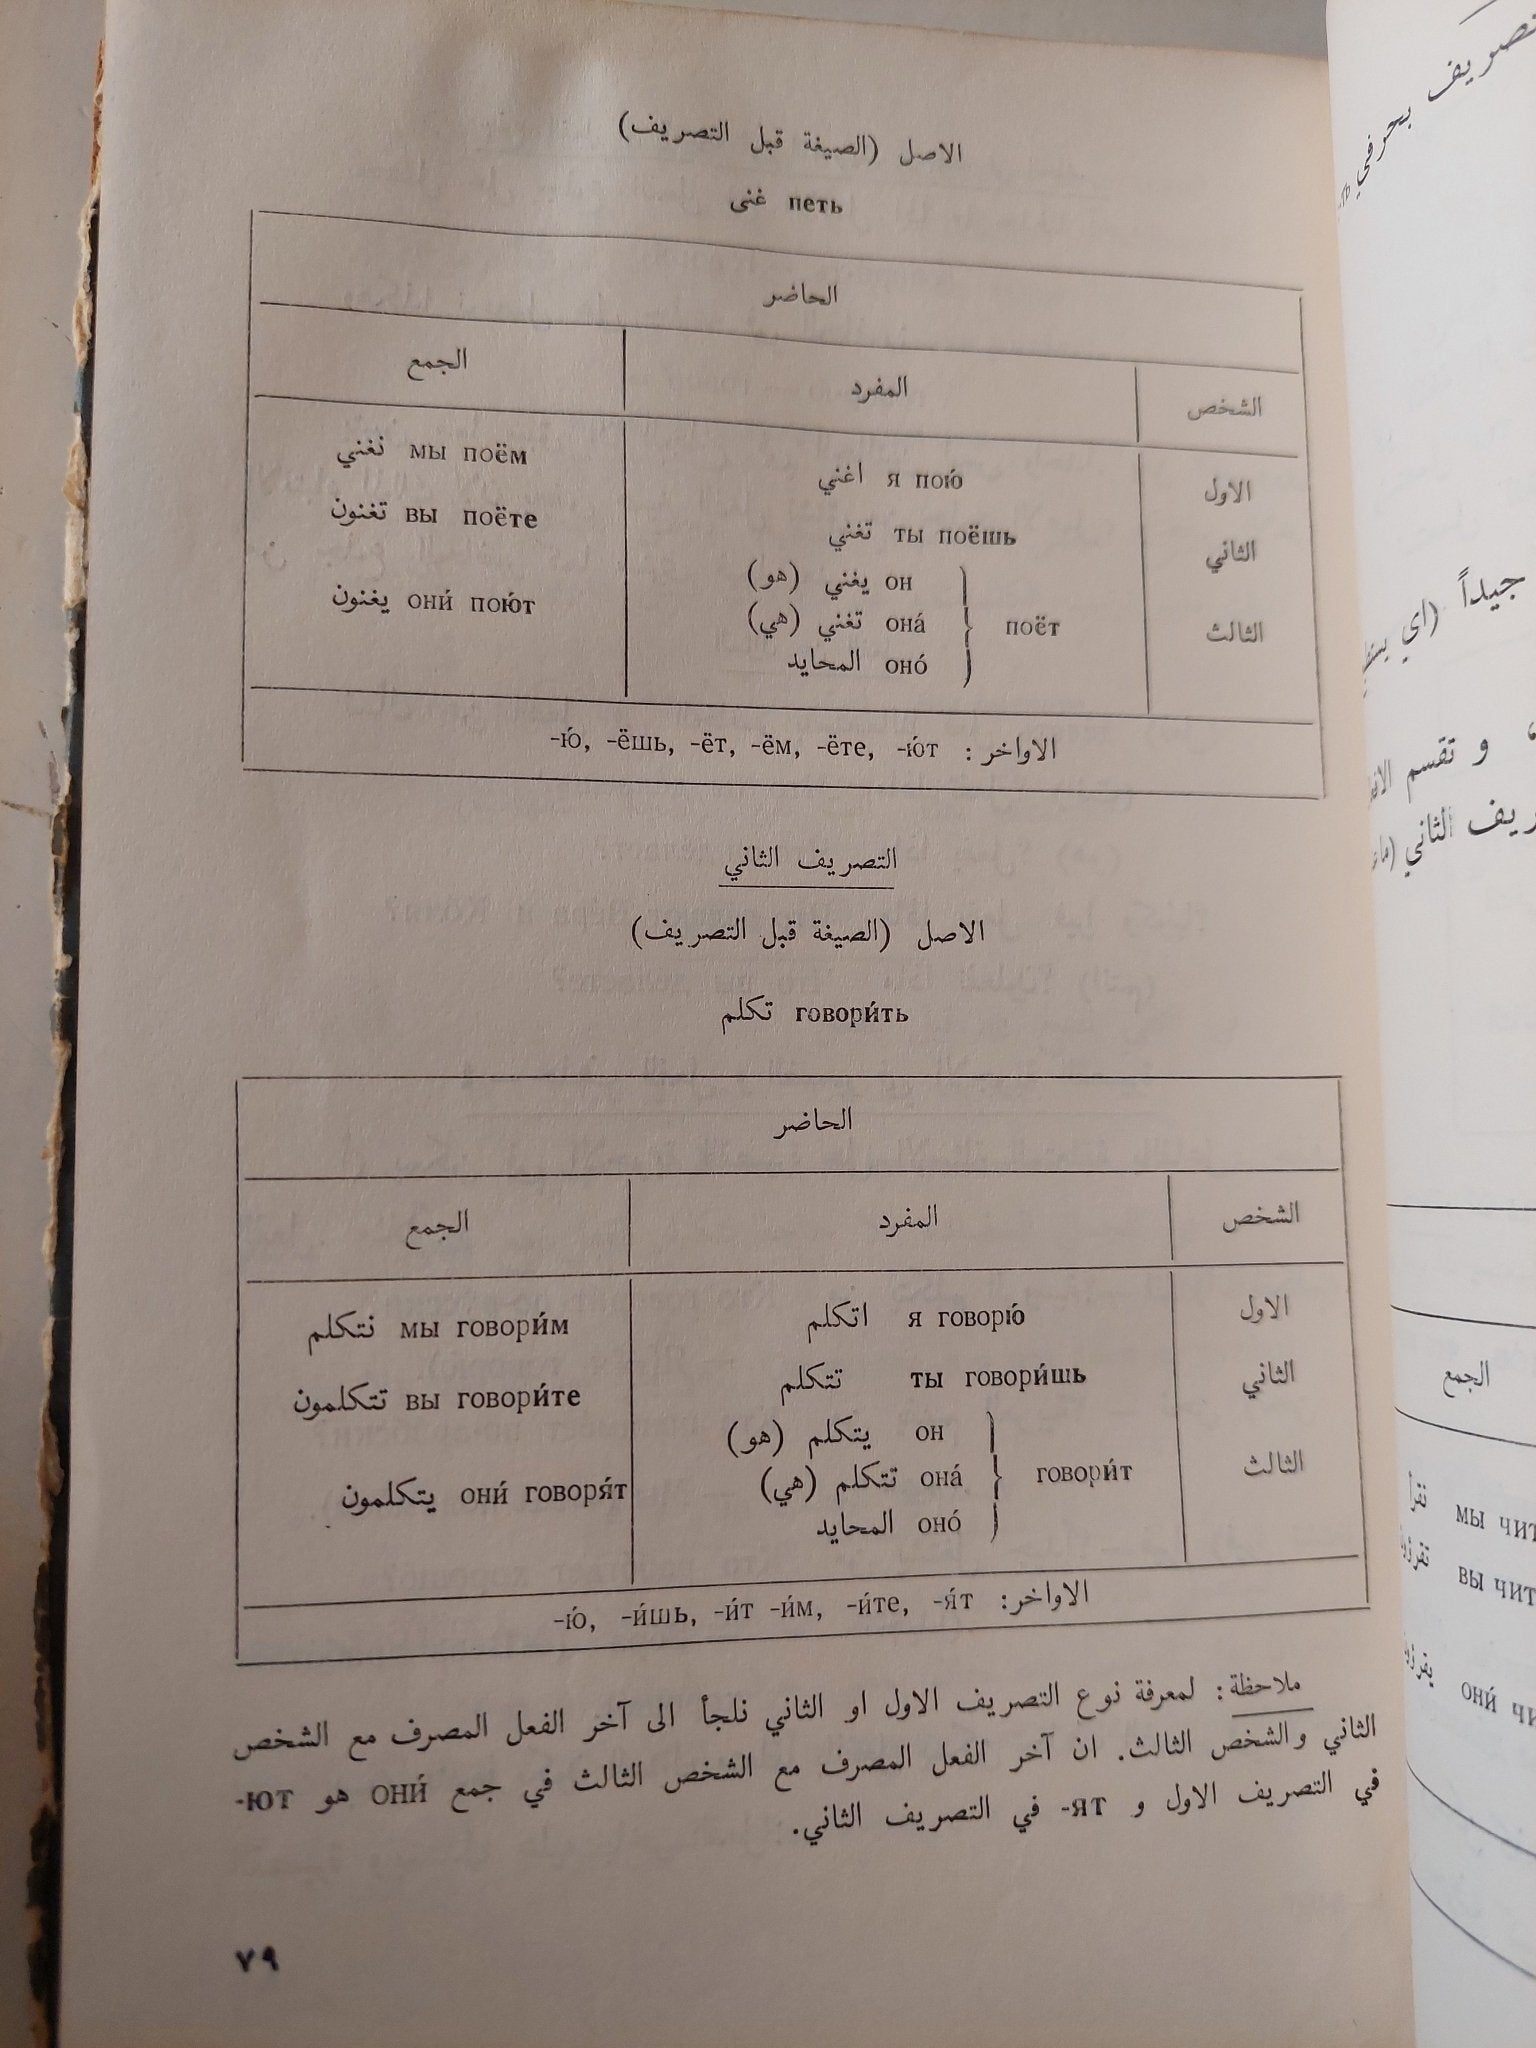 الاصل (الصيغة قبل التصريف)
петь غنى
الحاضر
الشخص المفرد الجمع
الاول я пою́ اغني мы поём نغني
الثاني ты поёшь تغني вы поёте تغنون
он يغني (هو)
الثالث поёт она́ تغني (هي) они́ пою́т يغنون
оно́ المحايد
الاواخر: -ю́, -ёшь, -ёт, -ём, -ёте, -ю́т
التصريف الثاني
الاصل (الصيغة قبل التصريف)
говори́ть تكلم
الحاضر
الشخص المفرد الجمع
الاول я говорю́ اتكلم мы говори́м نتكلم
الثاني ты говори́шь تتكلم вы говори́те تتكلمون
он يتكلم (هو)
الثالث говори́т она́ تتكلم (هي) они́ говоря́т يتكلمون
оно́ المحايد
الاواخر: -ю́, -и́шь, -и́т -и́м, -и́те, -я́т
ملاحظة: لمعرفة نوع التصريف الاول او الثاني نلجأ الى آخر الفعل المصرف مع الشخص
الثاني والشخص الثالث. ان آخر الفعل المصرف مع الشخص الثالث في جمع они́ هو -ют
في التصريف الاول و -ят في التصريف الثاني.
٧٩
تصريف بحرفي
جيداً (اي
و تقسم
الثاني
الجمع
мы نقرأ
вы
они́